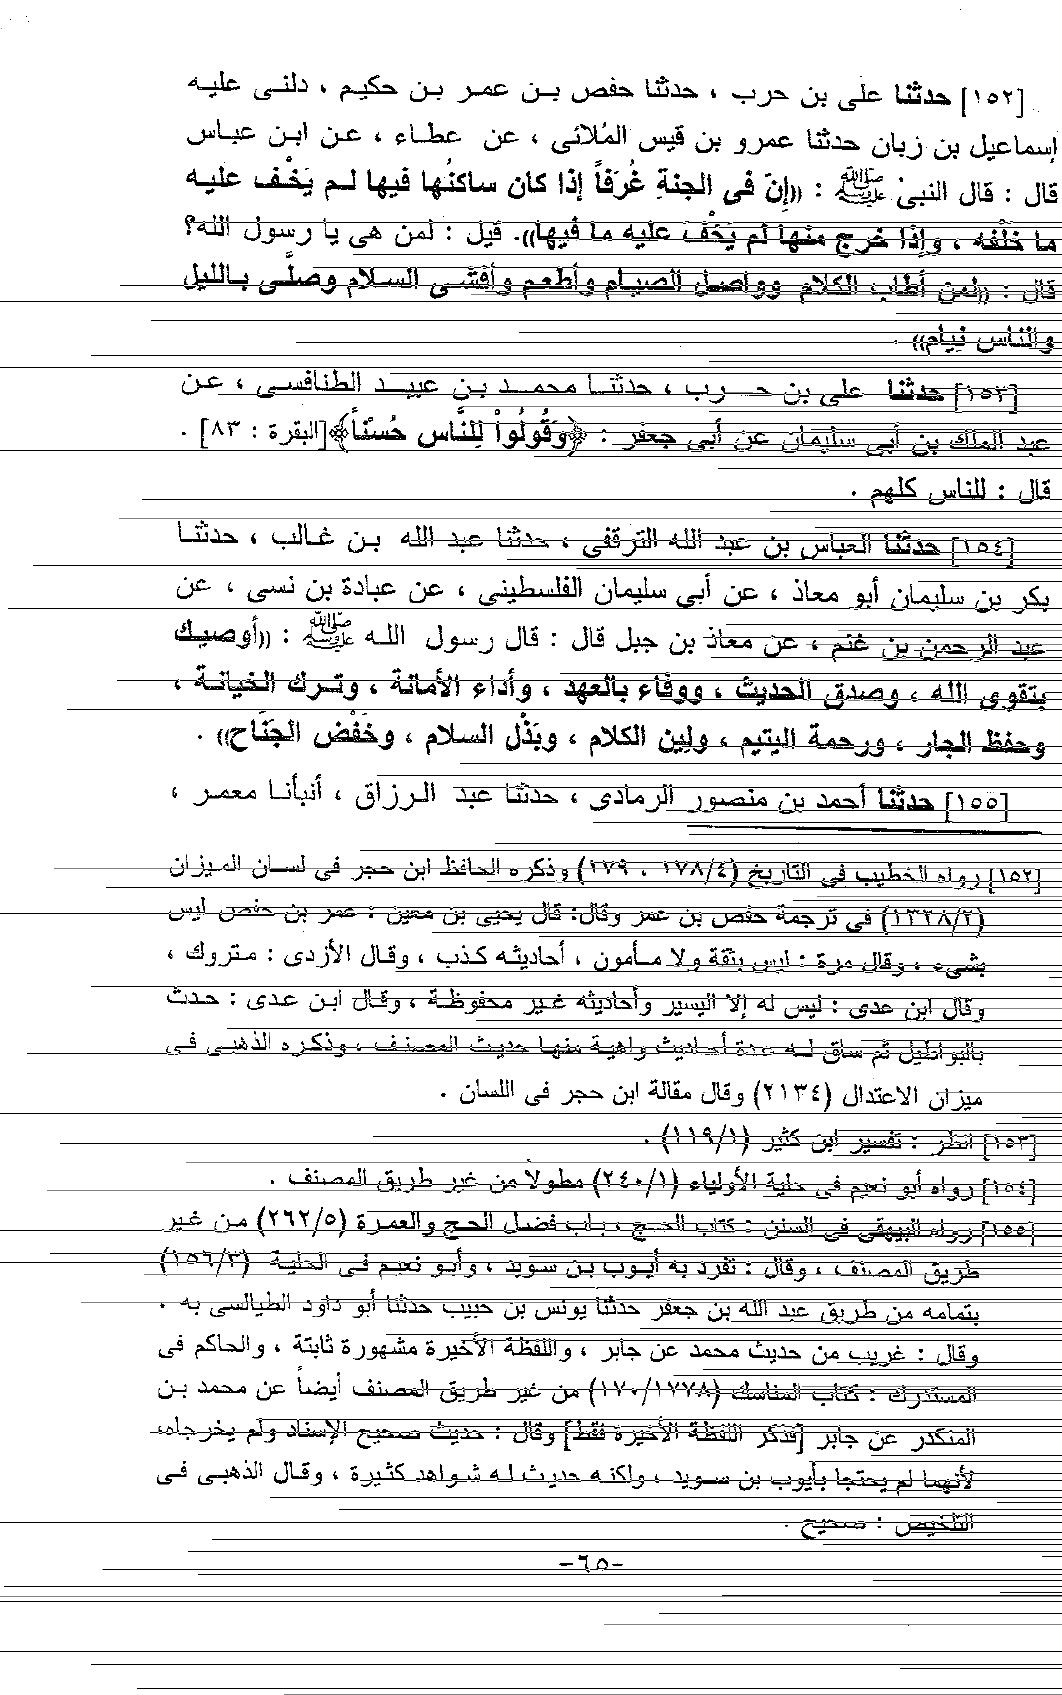 [١٥٢] حدثنا على بن حرب ، حدثنا حفص بن عمر بن حكيم ، دلنى عليه
إسماعيل بن زبان حدثنا عمرو بن قيس المُلائى ، عن عطاء ، عن ابن عباس
قال : قال النبى ﷺ : ((إنّ فى الجنةِ غُرَفاً إذا كان ساكنُها فيها لم يَخْف عليه
ما خلْفه ، وإذا خرج منها لم يَخْفَ عليه ما فيها)). قيل : لمن هى يا رسول الله؟
قال : ((لمن أطاب الكلام وواصل الصيام وأطعم وأفشى السلام وصلَّى بالليل
والناس نيام)) .
[١٥٣] حدثنا على بن حرب ، حدثنا محمد بن عبيد الطنافسى ، عن
عبد الملك بن أبى سليمان عن أبى جعفر : ﴿وَقُولُواْ لِلنَّاسِ حُسْنًا﴾[البقرة : ٨٣] .
قال : للناس كلهم .
[١٥٤] حدثنا العباس بن عبد الله الترقفى ، حدثنا عبد الله بن غالب ، حدثنا
بكر بن سليمان أبو معاذ ، عن أبي سليمان الفلسطينى ، عن عبادة بن نسى ، عن
عبد الرحمن بن غنم ، عن معاذ بن جبل قال : قال رسول الله ﷺ : ((أوصيك
بتقوى الله ، وصدق الحديث ، ووفاء بالعهد ، وأداء الأمانة ، وترك الخيانة ،
وحفظ الجار ، ورحمة اليتيم ، ولين الكلام ، وبَذْل السلام ، وخَفْض الجَنَاح)) .
[١٥٥] حدثنا أحمد بن منصور الرمادى ، حدثنا عبد الرزاق ، أنبأنا معمر ،
[١٥٢] رواه الخطيب فى التاريخ (١٧٨/٤ ، ١٧٩) وذكره الحافظ ابن حجر فى لسان الميزان
(١٣٢٨/٢) فى ترجمة حفص بن عمر وقال: قال يحيى بن معين : عمر بن حفص ليس
بشىء ، وقال مرة : ليس بثقة ولا مأمون ، أحاديثه كذب ، وقال الأزدى : متروك ،
وقال ابن عدى : ليس له إلا اليسير وأحاديثه غير محفوظة ، وقال ابن عدى : حدث
بالبواطيل ثم ساق له عدة أحاديث واهية منها حديث المصنف ، وذكره الذهبى فى
ميزان الاعتدال (٢١٣٤) وقال مقالة ابن حجر فى اللسان .
[١٥٣] انظر : تفسير ابن كثير (١١٩/١) .
[١٥٤] رواه أبو نعيم فى حلية الأولياء (٢٤٠/١) مطولاً من غير طريق المصنف .
[١٥٥] رواه البيهقى فى السنن : كتاب الحج ، باب فضل الحج والعمرة (٢٦٢/٥) من غير
طريق المصنف ، وقال : تفرد به أيوب بن سويد ، وأبو نعيم فى الحلية (١٥٦/٣)
بتمامه من طريق عبد الله بن جعفر حدثنا يونس بن حبيب حدثنا أبو داود الطيالسى به .
وقال : غريب من حديث محمد عن جابر ، واللفظة الأخيرة مشهورة ثابتة ، والحاكم فى
المستدرك : كتاب المناسك (١٧٠/١٧٧٨) من غير طريق المصنف أيضاً عن محمد بن
المنكدر عن جابر [فذكر اللفظة الأخيرة فقط] وقال : حديث صحيح الإسناد ولم يخرجاه،
لأنهما لم يحتجا بأيوب بن سويد ، ولكنه حديث له شواهد كثيرة ، وقال الذهبى فى
التلخيص : صحيح .
-٦٥-